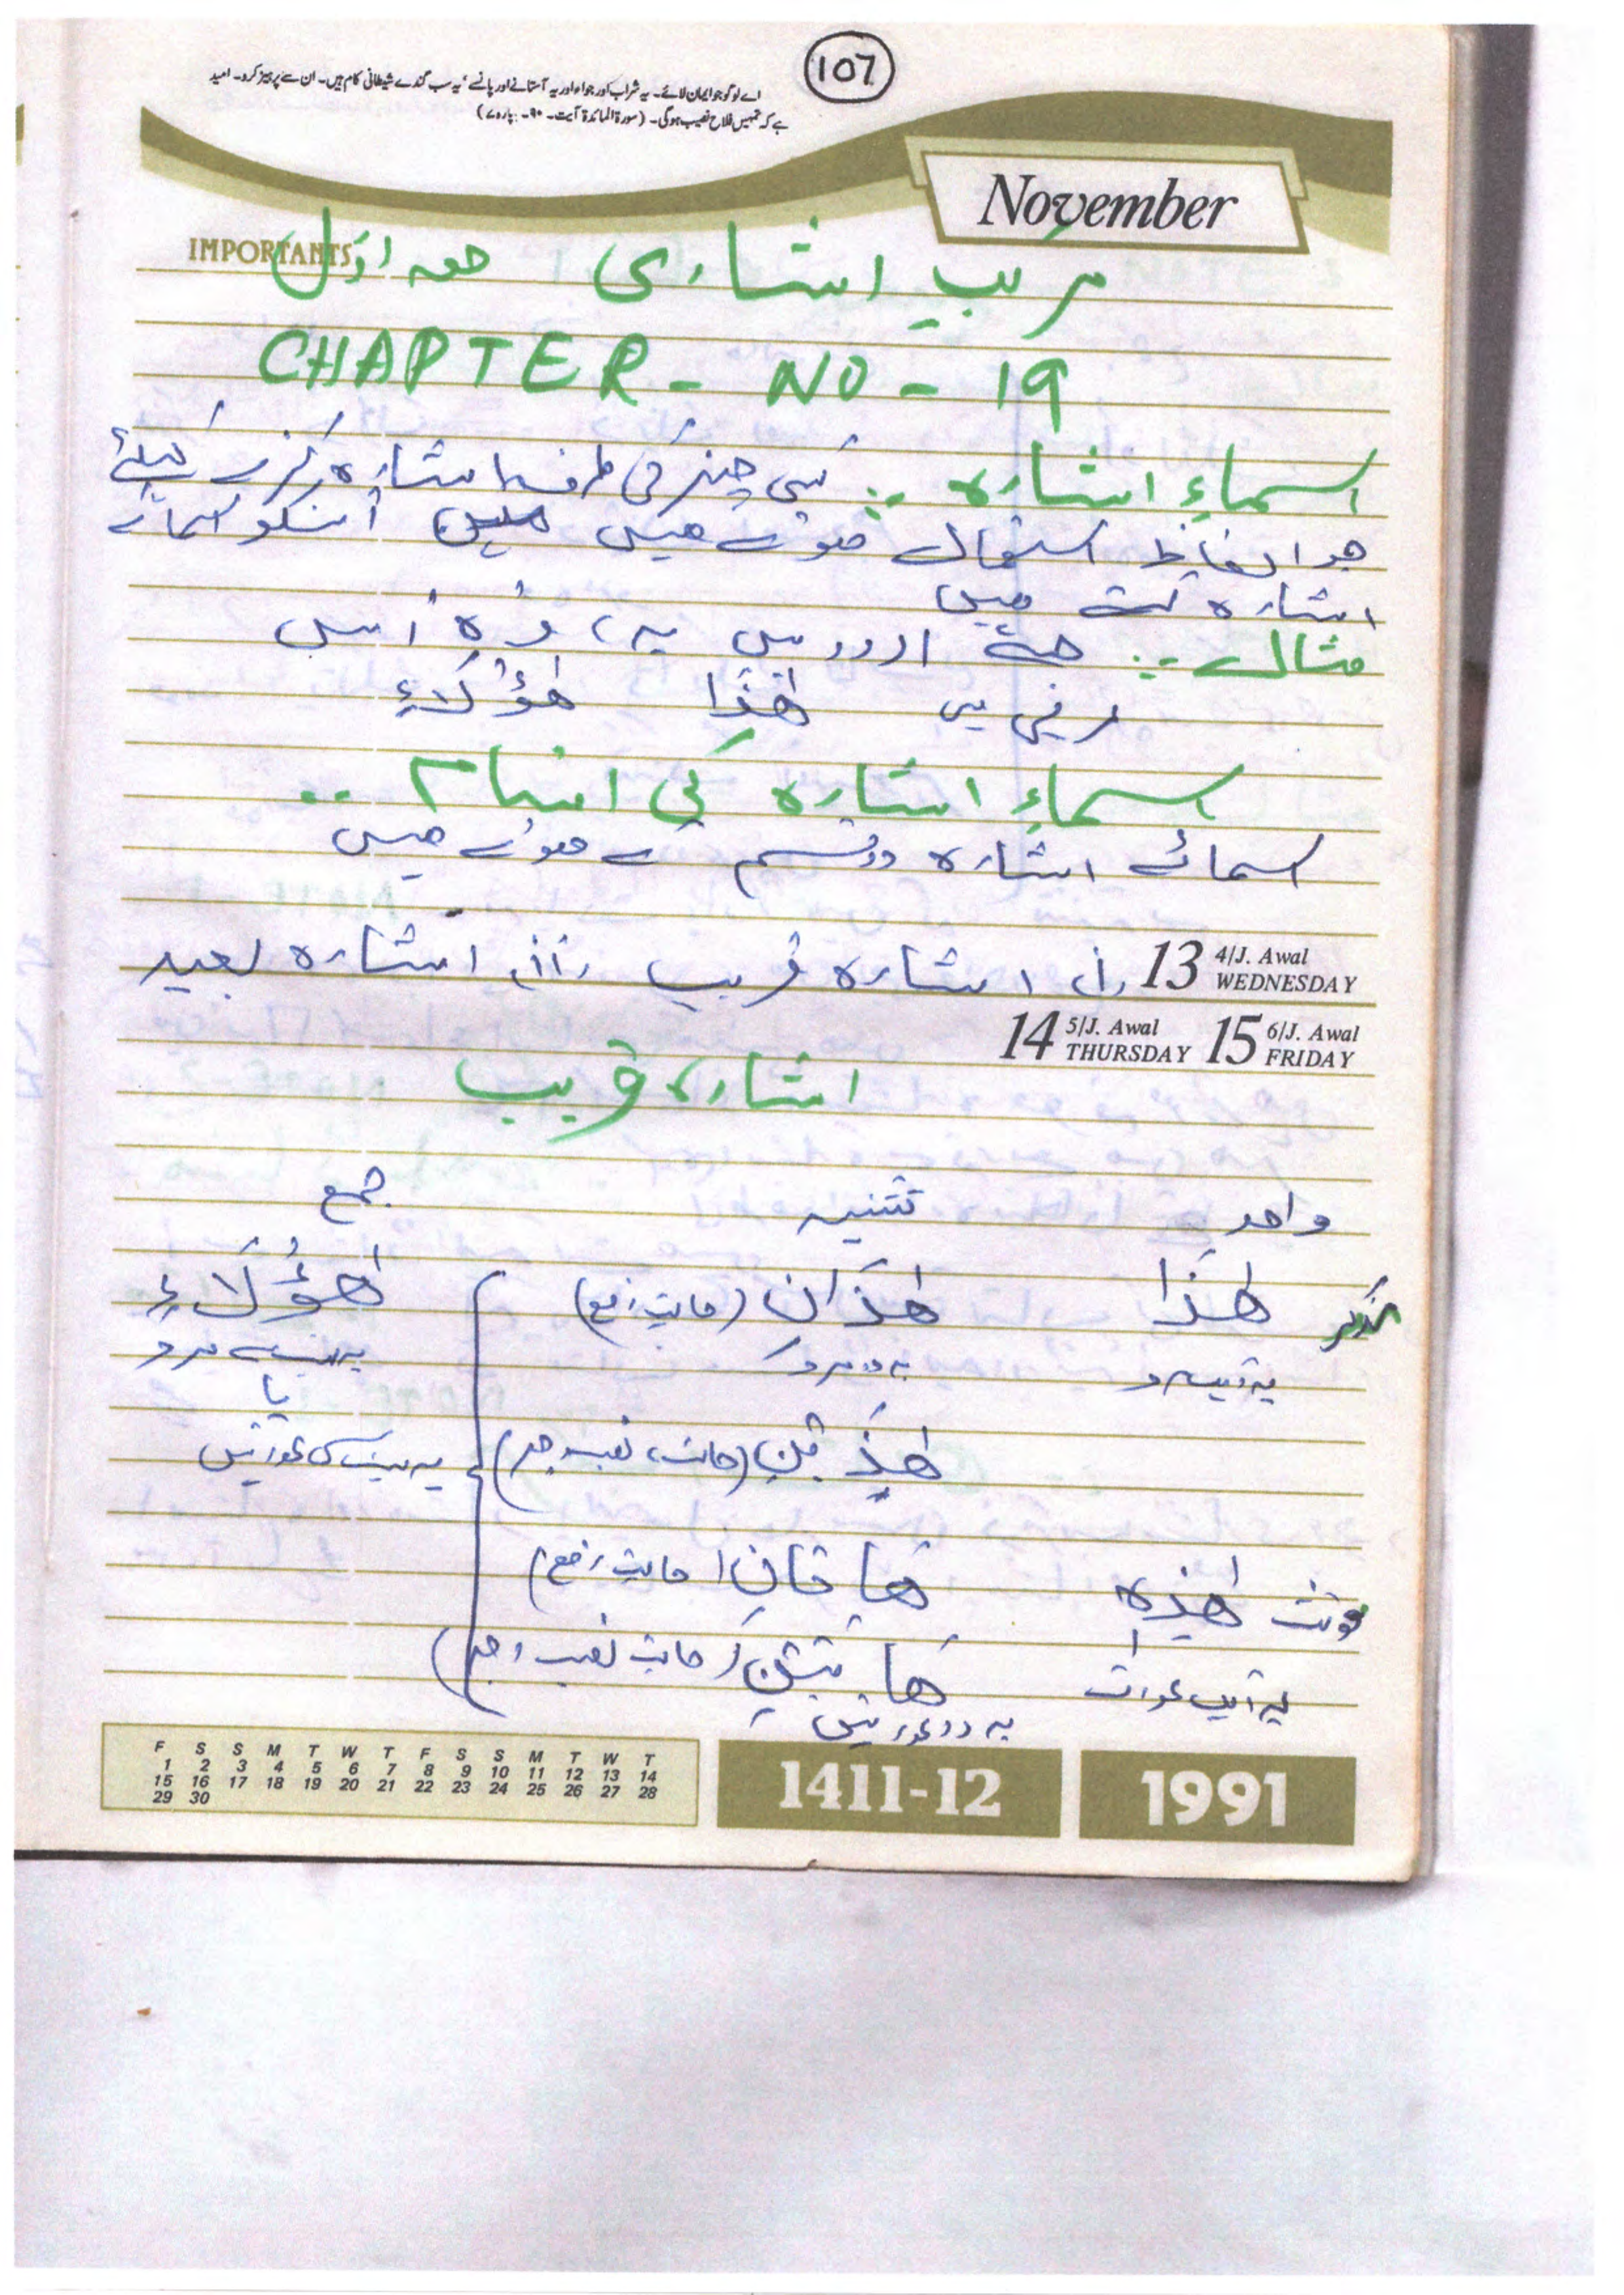 107
اے لوگو جو ایمان لائے۔ یہ شراب اور جوا، اور یہ آستانے اور پانسے، یہ سب گندے شیطانی کام ہیں۔ ان سے پرہیز کرو۔ امید
ہے کہ تمہیں فلاح نصیب ہوگی۔ (سورۃ المائدۃ آیت۔ ۹۰۔ پارہ ۷)
November
IMPORTANTS
مرکب اشاری حصہ اوّل
CHAPTER - NO - 19
اسماءِ اشارہ :- کسی چیز کی طرف اشارہ کرنے کیلئے
جو الفاظ استعمال ہوتے ہیں انکو اسمائے
اشارہ کہتے ہیں
مثال :- جیسے اردو میں یہ، وُہ اُس
عربی میں ھٰذَا ھٰؤُلَاءِ
اسماءِ اشارہ کی اقسام :-
اسمائے اشارہ دو قسم کے ہوتے ہیں
(i) اشارہ قریب (ii) اشارہ بعید
13 4/J. Awal WEDNESDAY
14 5/J. Awal THURSDAY 15 6/J. Awal FRIDAY
اشارہ قریب
واحد تثنیہ جمع
مذکر ھٰذَا ھٰذَانِ (حالتِ رفع) ھٰؤُلَاءِ
یہ ایک مرد یہ دو مرد یہ بہت سے مرد
یا
ھٰذَیْنِ (حالت نصب و جر) یہ بہت سی عورتیں
مونث ھٰذِہٖ ھَا تَانِ (حالتِ رفع)
یہ ایک عورت ھَا تَیْنِ (حالت نصب و جر)
یہ دو عورتیں
F S S M T W T F S S M T W T
1 2 3 4 5 6 7 8 9 10 11 12 13 14
15 16 17 18 19 20 21 22 23 24 25 26 27 28
29 30
1411-12 1991